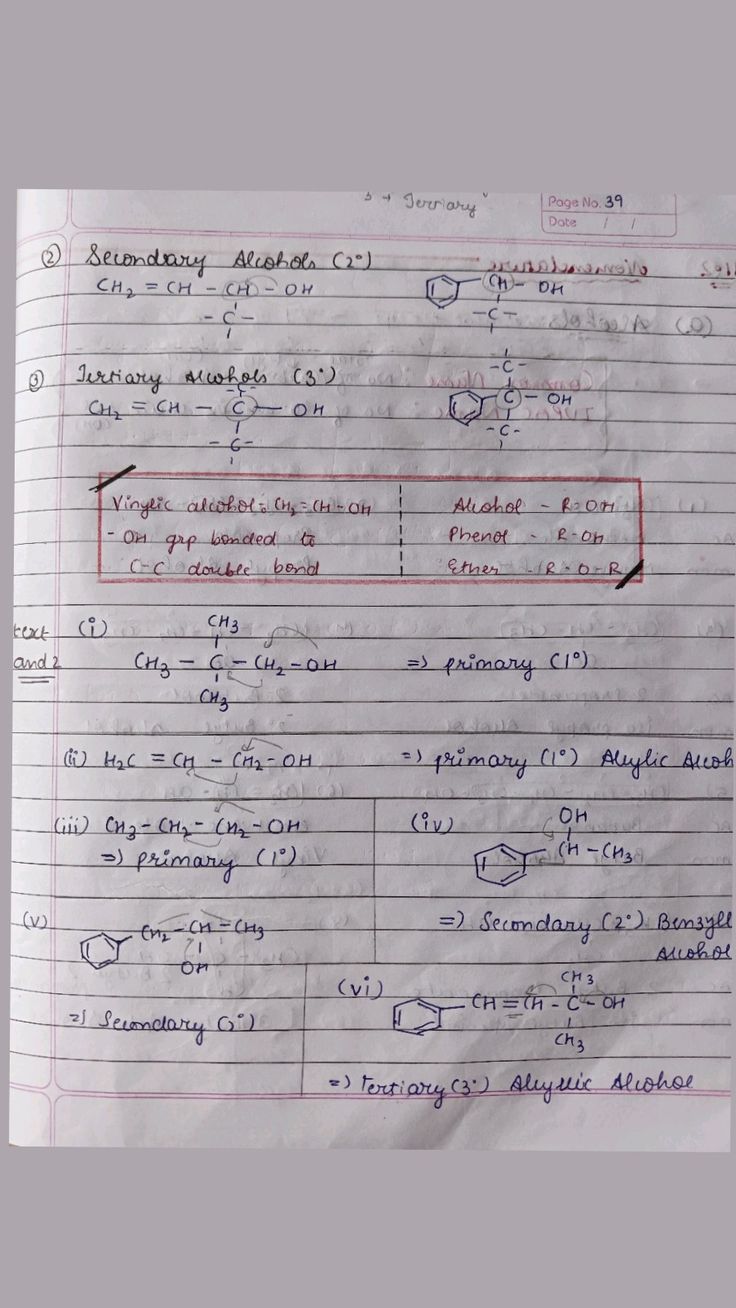 3 → Tertiary
Page No. 39
Date / /
② Secondary Alcohols (2°)
CH₂ = CH - CH - OH
- C -
CH - OH
- C -
③ Tertiary Alcohols (3°)
- C -
CH₂ = CH - C - OH
- C -
- C -
C - OH
- C -
Vinylic alcohol = CH₂ = CH - OH
- OH grp bonded to
C-C double bond
Alcohol - R-OH
Phenol - R-OH
Ether - R-O-R
text
and 2
(i)
CH₃
CH₃ - C - CH₂ - OH => primary (1°)
CH₃
(ii) H₂C = CH - CH₂ - OH => primary (1°) Allylic Alcoh
(iii) CH₃ - CH₂ - CH₂ - OH
=> primary (1°)
(iv)
OH
CH - CH₃
=> Secondary (2°) Benzyll
Alcohol
(v)
CH₂ - CH - CH₃
OH
=> Secondary (2°)
(vi)
CH₃
CH = CH - C - OH
CH₃
=> Tertiary (3°) Allyllic Alcohol